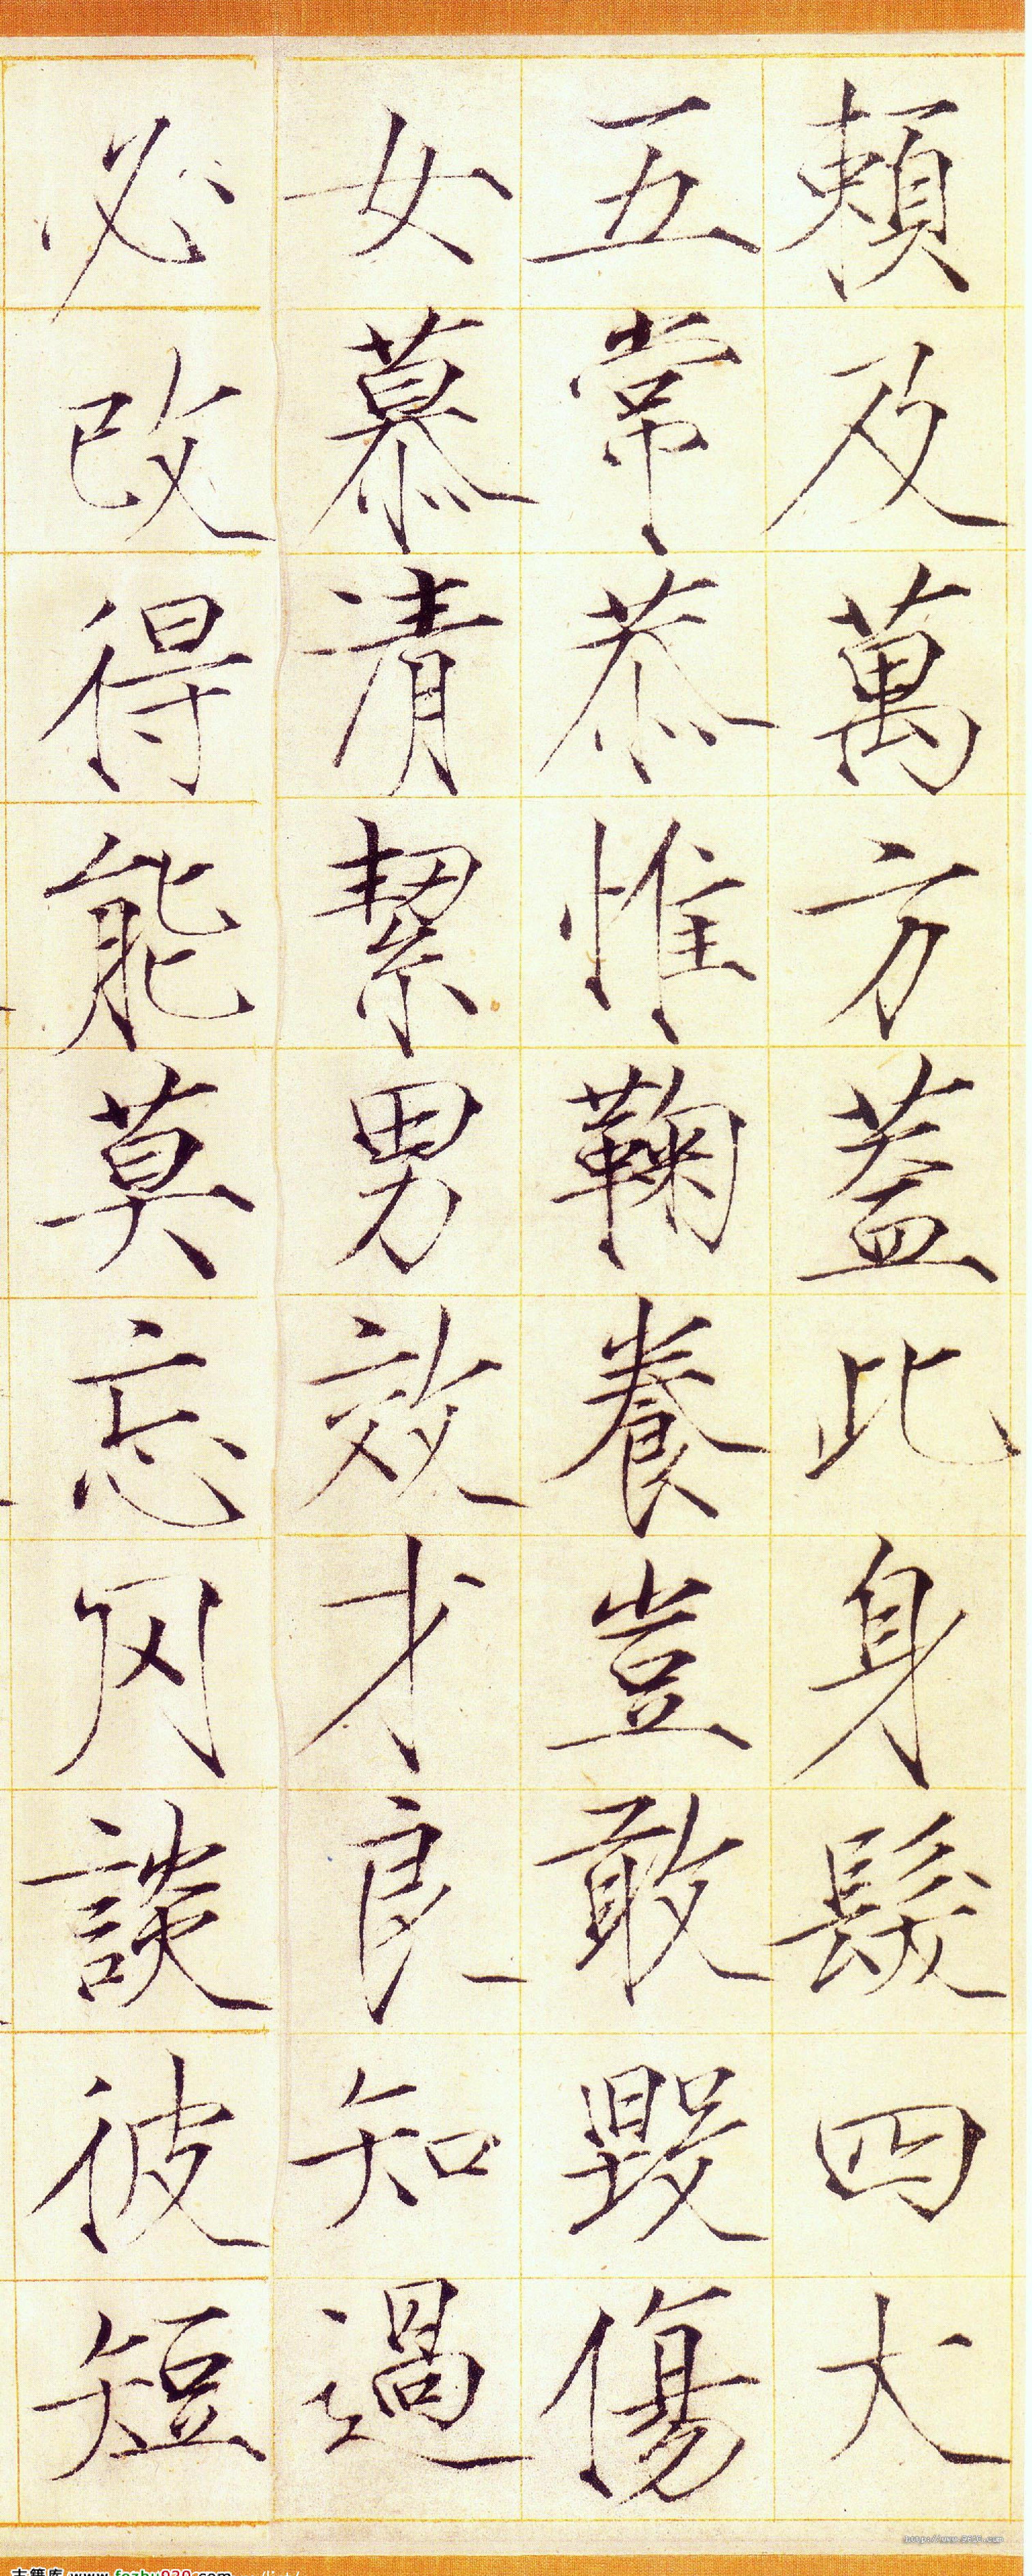 頼及萬方蓋此身髮四大
五常恭惟鞠養豈敢毀傷
女慕清絜男效才良知過
必改得能莫忘罔談彼短
古籍库 www.fozhu920.com